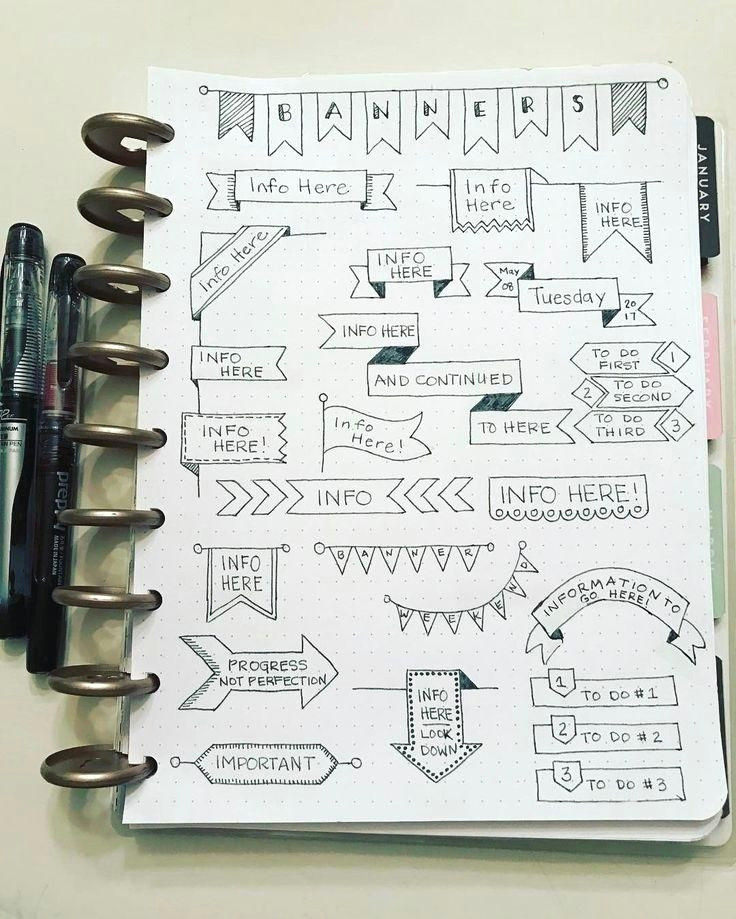 BANNERS
Info Here
Info
Here
INFO
HERE
Info Here
INFO
HERE
May
08
Tuesday
20
17
INFO HERE
AND CONTINUED
TO HERE
TO DO
FIRST
1
2
TO DO
SECOND
TO DO
THIRD
3
INFO
HERE
INFO
HERE!
Info
Here!
INFO
INFO HERE!
INFO
HERE
BANNER
WEEKEND
INFORMATION TO
GO HERE!
PROGRESS
NOT PERFECTION
INFO
HERE
LOOK
DOWN
1
TO DO #1
2
TO DO #2
3
TO DO #3
IMPORTANT
JANUARY
FEBRUARY
preppy
MADE IN JAPAN